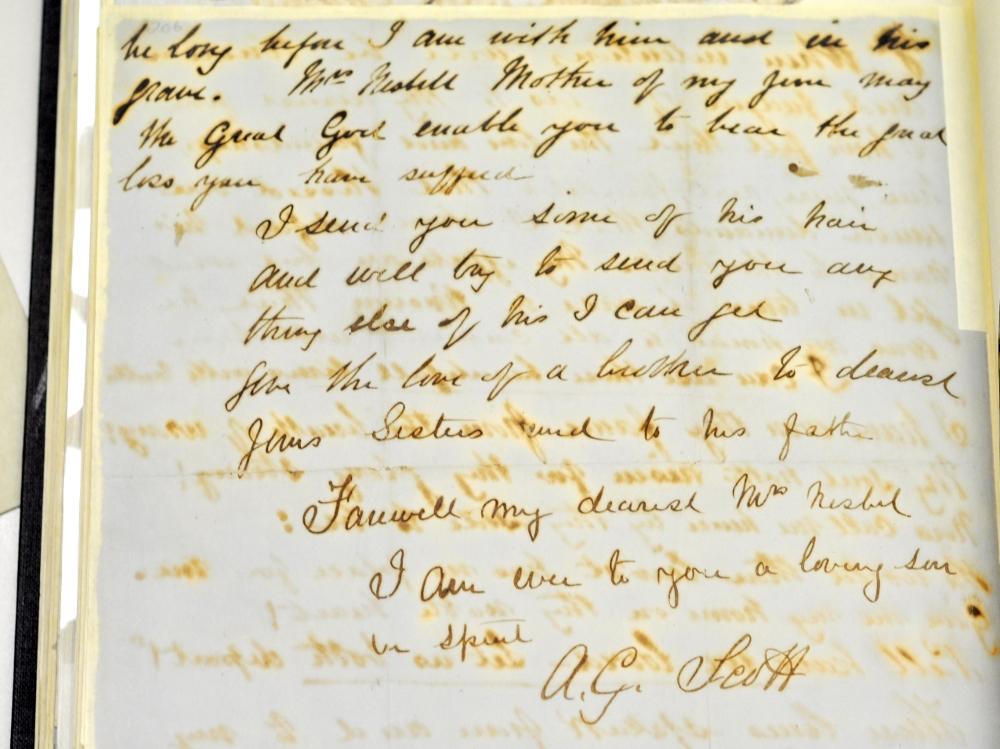 be long before I am with him and in his
grave. Mrs Nesbell Mother of my Jim may
the Great God enable you to bear the great
loss you have suffered
I send you some of his hair
and will try to send you any
thing else of his I can get
Give the love of a brother to dearest
Jims Sisters and to his father
Farwell my dearest Mrs Nesbel
I am ever to you a loving son
in spirit
A.G. Scott